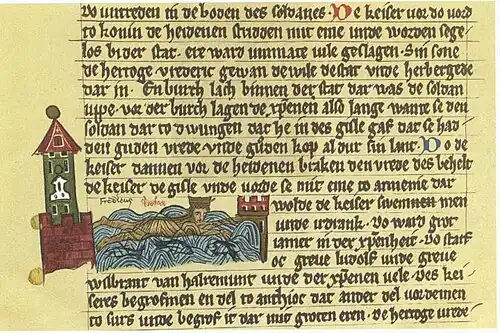 Do untreden in de boden des soldanes. De keiser vor do vord
to konin de heidenen stridden mit eme unde worden sege
los bi der stat. ere ward unmate vile geslagen. Sin sone
de hertoge vrederic gewan de wile de stat unde herbergede
dar in. En burch lach binnen der stat dar was de soldan
uppe. vor der burch lagen de xpenen also lange wante se den
soldan dar to dwungen dat he in des gisle gaf dat se had
den guden vrede unde guden kop al dur sin lant. Do de
keiser dannen vor de heidenen braken den vrede des behelt
de keiser de gisle unde vorde se mit eme to armenie dar
wolde de keiser swemmen
unde irdrank. Do ward grot
iamer in der xpenheit. Do starf
oc greve ludolf unde greve
wilbrant van halremunt unde der xpenen vele. Des kei
seres begrofmen en del to anthioc dat ander del vordemen
to surs unde begrof it dar mit groten eren. De hertoge vrede